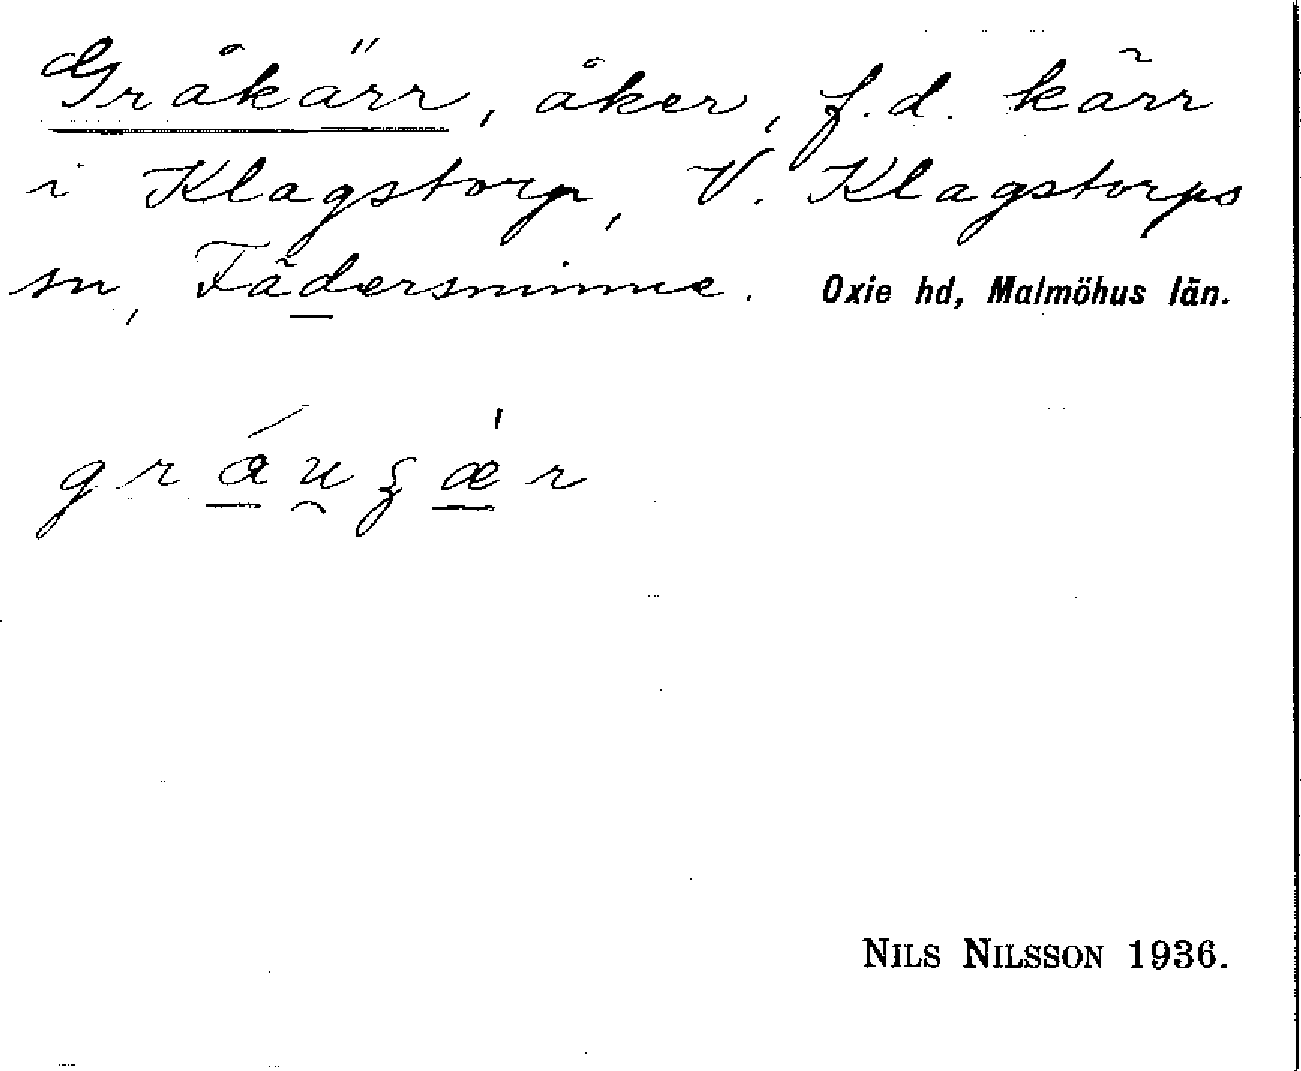 Gråkärr, åker, f.d. kärr
i Klagstorp, V. Klagstorps
sn, Fädersminne. Oxie hd, Malmöhus län.
NILS NILSSON 1936.